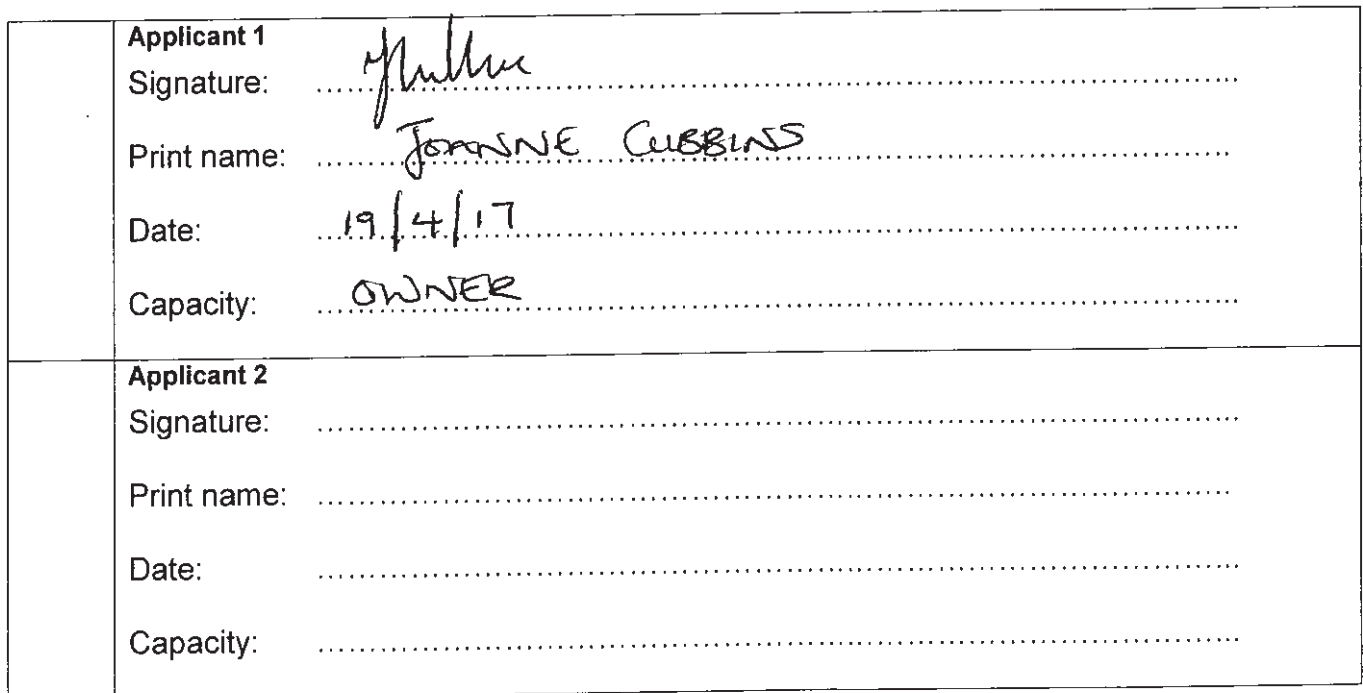 Applicant 1
Signature: ................................................................
Print name: JOANNE CUBBINS
Date: 19/4/17
Capacity: OWNER
Applicant 2
Signature: ................................................................
Print name: ................................................................
Date: ................................................................
Capacity: ................................................................